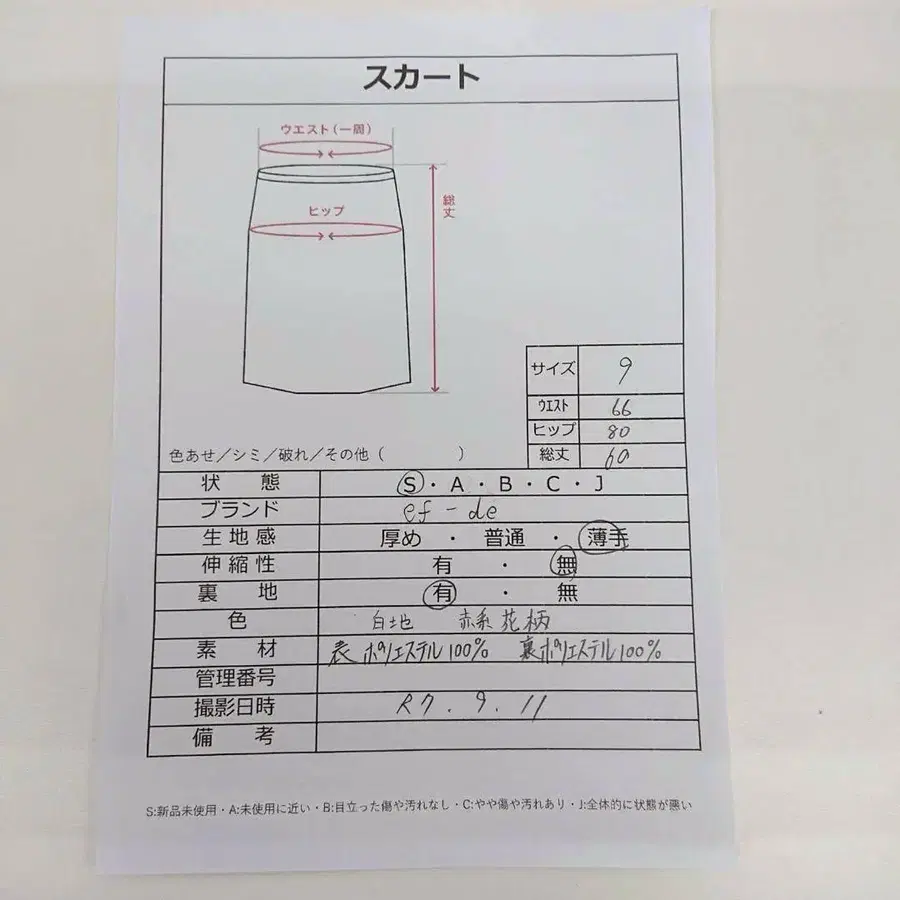 スカート
ウエスト(一周)
総丈
ヒップ
サイズ 9
ウエスト 66
ヒップ 80
総丈 60
色あせ／シミ／破れ／その他( )
状態 S・A・B・C・J
ブランド ef-de
生地感 厚め ・ 普通 ・ 薄手
伸縮性 有 ・ 無
裏地 有 ・ 無
色 白地 赤系花柄
素材 表ポリエステル100% 裏ポリエステル100%
管理番号
撮影日時 R7.9.11
備考
S:新品未使用・A:未使用に近い・B:目立った傷や汚れなし・C:やや傷や汚れあり・J:全体的に状態が悪い